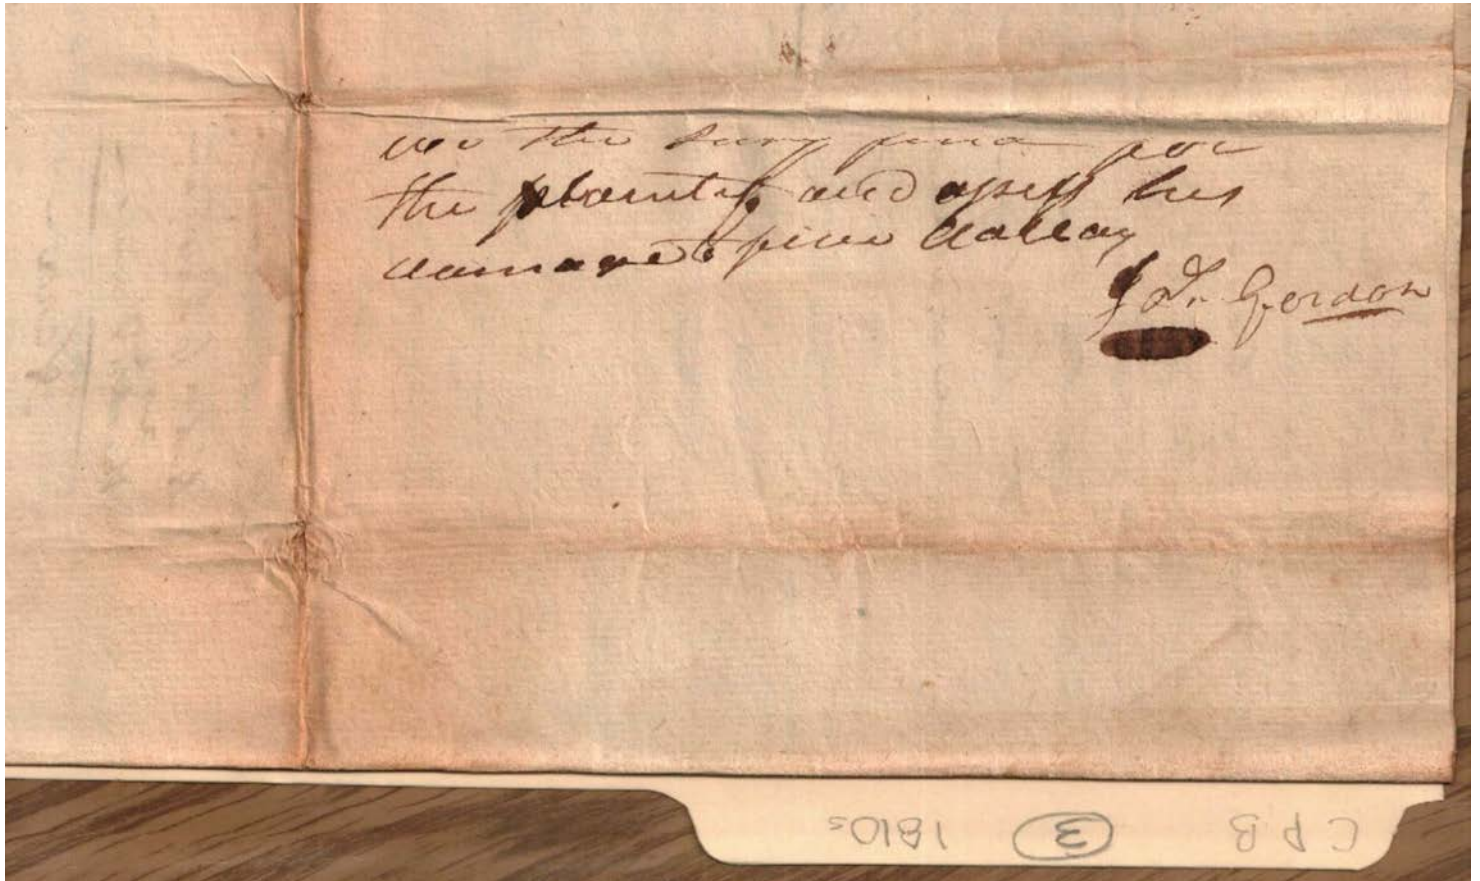 we the Jury find for
the plaintif and assess his
damage to five dollars
Gordon
C P B 3 1810s